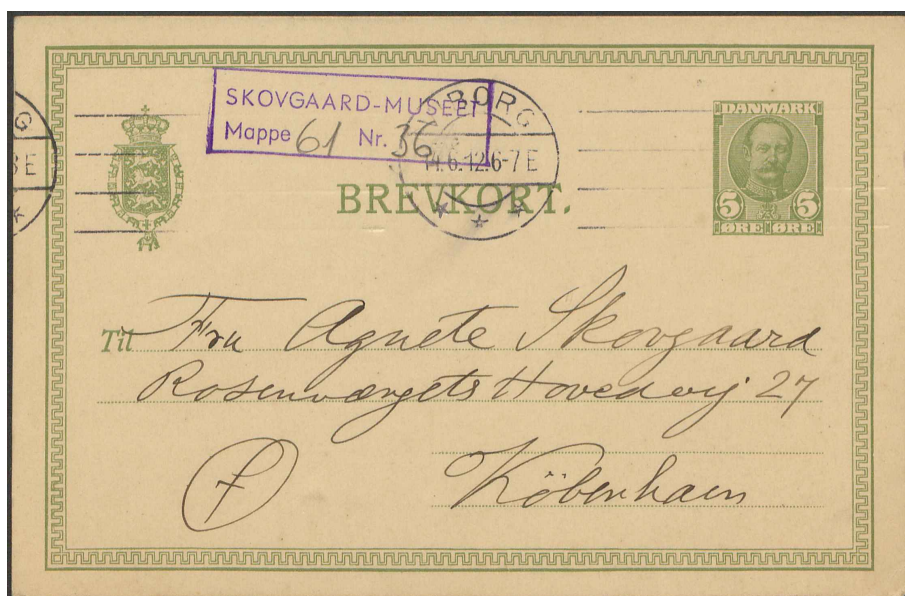 SKOVGAARD-MUSEET
Mappe 61 Nr. 36
BORG
14.6.12.6-7 E
G
E
DANMARK
5 5
ØRE ØRE
BREVKORT.
Til Fru Agnete Skovgaard
Rosenvængets Hovedvej 27
København